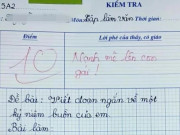 5A2
KIỂM TRA
Môn: Tập làm văn Thời gian:
Điểm
Lời phê của thầy, cô giáo
10
Mạnh mẽ lên con
gái!
Đề bài: Viết đoạn ngắn về một
kỷ niệm buồn của em.
Bài làm